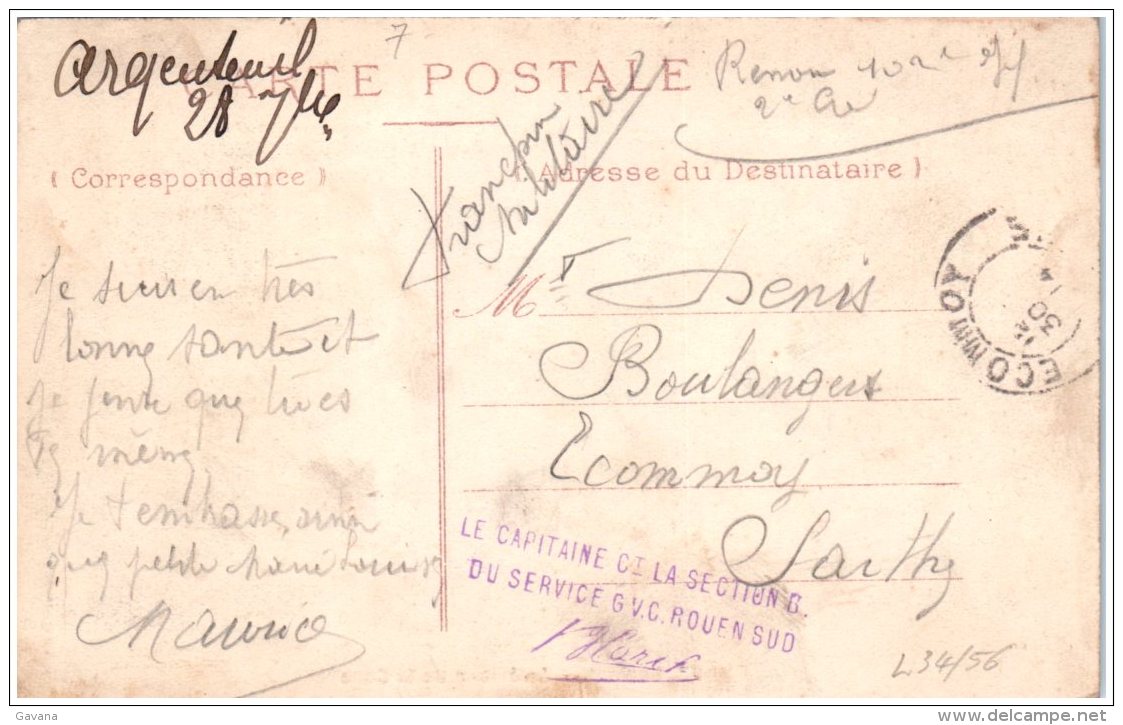 7
Argenteuil
28 7bre
CARTE POSTALE
2e Cie
Franchise
Militaire
( Correspondance )
( Adresse du Destinataire )
Je suis en très
bonne santé et
je pense que tu es
de même
Je t'embrasse ainsi
que petite Marie Louise
Maurice
Mr Denis
Boulanger
Ecommoy
Sarthe
ECOMMOY
30
14
LE CAPITAINE CT LA SECTION B.
DU SERVICE G.V.C. ROUEN SUD
L34/56
Gavana
www.delcampe.net